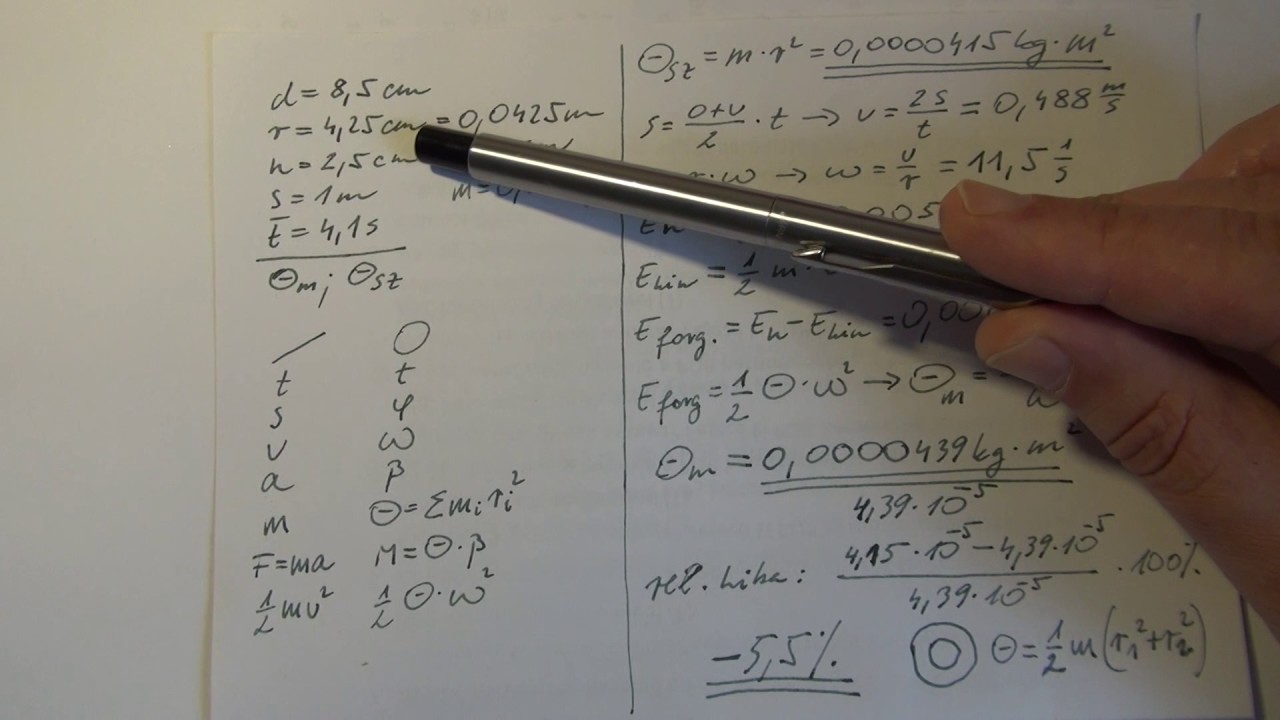 d = 8,5 cm
r = 4,25 cm = 0,0425 m
h = 2,5 cm
s = 1 m m = 0,
t̅ = 4,1 s
Θm; Θsz
t t
s φ
v ω
a β
m Θ = Σmᵢrᵢ²
F = ma M = Θ·β
½mv² ½Θ·ω²
Θsz = m·r² = 0,0000415 kg·m²
s = (0+v)/2 · t → v = 2s/t = 0,488 m/s
·ω → ω = v/r = 11,5 1/s
005
Ekin = ½ m
Eforg. = Eh − Ekin = 0,00
Eforg = ½ Θ·ω² → Θm =
Θm = 0,0000439 kg·m²
4,39·10⁻⁵
rel. hiba: (4,15·10⁻⁵ − 4,39·10⁻⁵)/(4,39·10⁻⁵) · 100%
−5,5%
Θ = ½m(r₁²+r₂²)